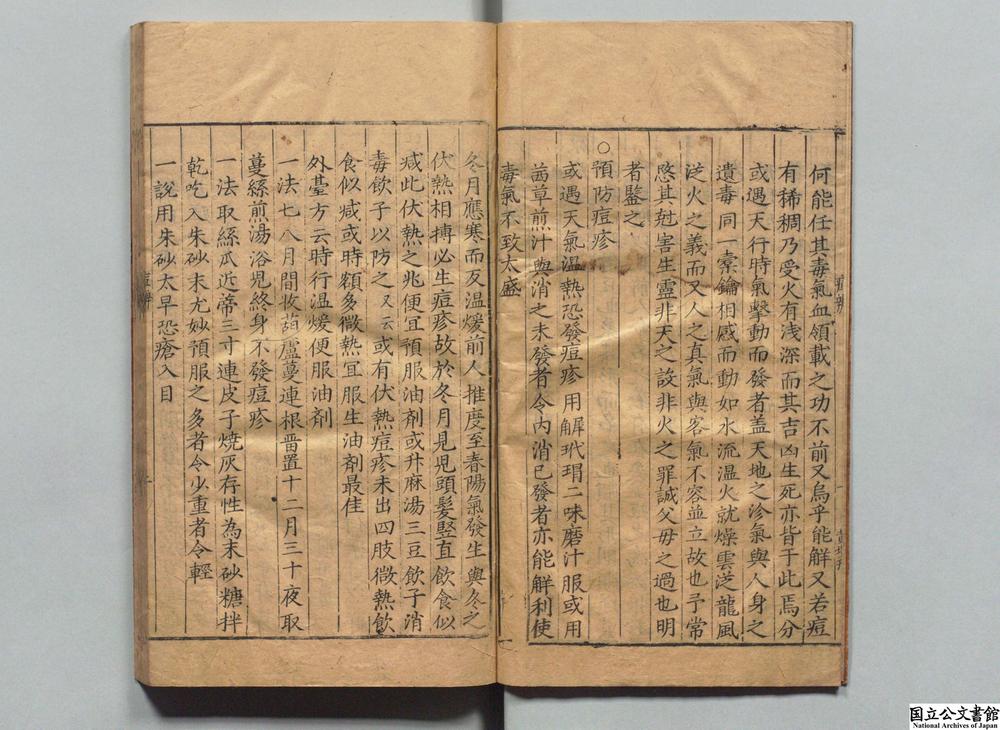 何能任其毒氣血領載之功不前又烏乎能解又若痘
有稀稠乃受火有浅深而其吉凶生死亦皆于此焉分
或遇天行時氣擊動而發者盖天地之沴氣與人身之
遺毒同一橐鑰相感而動如水流温火就燥雲从龍風
从火之義而又人之真氣與客氣不容並立故也予常
愍其尅害生靈非天之設非火之罪誠父毋之過也明
者鑒之
○預防痘疹
或遇天氣温熱恐發痘疹用犀玳瑁二味磨汁服或用
茜草煎汁與消之未發者令内消已發者亦能解利使
毒氣不致太盛
冬月應寒而反温煖前人推度至春陽氣發生與冬之
伏熱相搏必生痘疹故於冬月見児頭髮竪直飲食似
减此伏熱之兆便冝預服油劑或升麻湯三豆飲子消
毒飲子以防之又云或有伏熱痘疹未出四肢微熱飲
食似减或時額多微熱冝服生油劑最佳
外臺方云時行温煖便服油劑
一法七八月間收葫蘆蔓連根晋置十二月三十夜取
蔓絲煎湯浴児終身不發痘疹
一法取絲瓜近蒂三寸連皮子燒灰存性為末砂糖拌
乾吃入朱砂末尤妙預服之多者令少重者令輕
一說用朱砂太早恐瘡入目
国立公文書館
National Archives of Japan